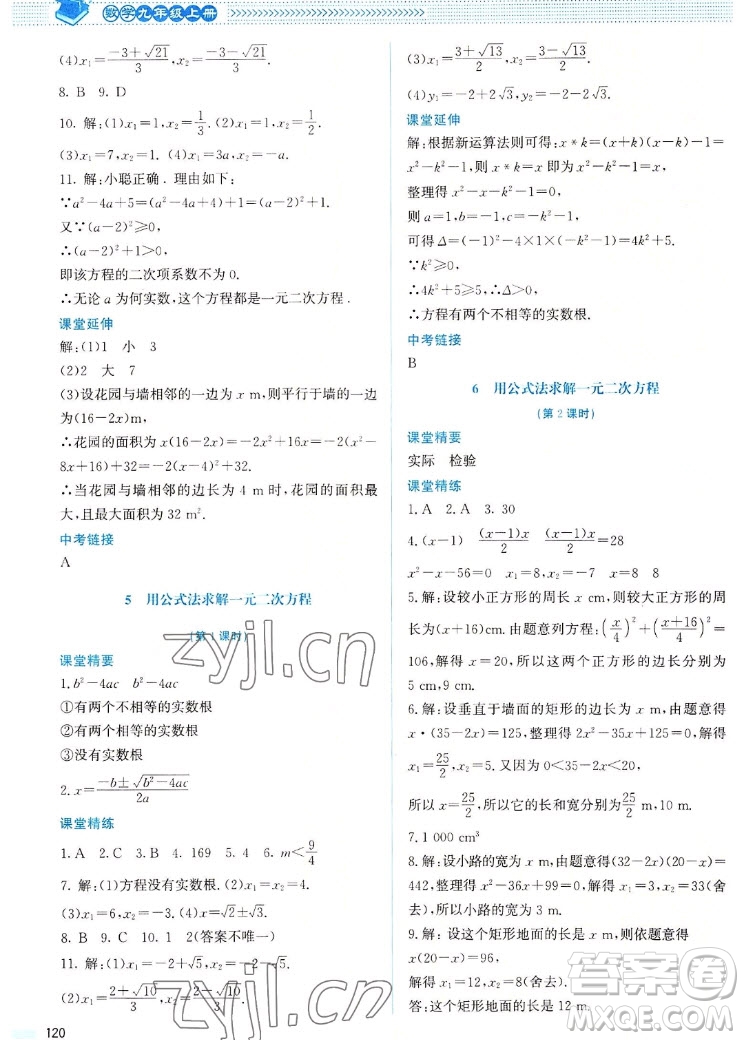 数学九年级上册
(4)x₁=(-3+√21)/3,x₂=(-3-√21)/3.
8. B 9. D
10. 解:(1)x₁=1,x₂=1/3. (2)x=1/3.
(3)x₁=7,x₂=1. (4)x₁=3a,x₂=-a.
11. 解:小聪正确. 理由如下:
∵a²-4a+5=(a²-4a+4)+1=(a-2)²+1,
又∵(a-2)²≥0,
∴(a-2)²+1>0,
即该方程的二次项系数不为 0.
∴无论 a 为何实数,这个方程都是一元二次方程.
课堂延伸
解:(1)1 小 3
(2)2 大 7
(3)设花园与墙相邻的一边为 x m,则平行于墙的一边为(16-2x)m.
∴花园的面积为 x(16-2x)=-2x²+16x=-2(x²-
8x+16)+32=-2(x-4)²+32.
∴当花园与墙相邻的边长为 4 m 时,花园的面积最
大,且最大面积为 32 m².
中考链接
A
5 用公式法求解一元二次方程
(第 1 课时)
课堂精要
1. b²-4ac b²-4ac
①有两个不相等的实数根
②有两个相等的实数根
③没有实数根
2. x=(-b±√(b²-4ac))/2a
课堂精练
1. A 2. C 3. B 4. 169 5. 4 6. m<9/4
7. 解:(1)方程没有实数根. (2)x₁=
(3)x₁=6,x₂=-1. (4)x=√2±√3.
8. B 9. C 10. 1 2(答案不唯一)
11. 解:(1)x₁=-2+√5,x₂=-2-√5.
(2)x₁=(2+√10)/3,x₂=(2-√10)/3.
120
(3)x₁=(3+√13)/2,x₂=(3-√13)/2.
(4)y₁=-2+2√3,y₂=-2-2√3.
课堂延伸
解:根据新运算法则可得:x*k=(x+k)(x-k)-1=
x²-k²-1,则 x*k=x 即为 x²-k²-1=x,
整理得 x²-x-k²-1=0,
则 a=1,b=-1,c=-k²-1,
可得 Δ=(-1)²-4×1×(-k²-1)=4k²+5.
∵k²≥0,
∴4k²+5≥5,∴Δ>0,
∴方程有两个不相等的实数根.
中考链接
B
6 用公式法求解一元二次方程
(第 2 课时)
课堂精要
实际 检验
课堂精练
1. A 2. A 3. 30
4. (x-1) (x-1)x/2 (x-1)x/2=28
x²-x-56=0 x₁=8,x₂=-7 8
5. 解:设较小正方形的周长为 x cm,则较大正方形的
周长为(x+16)cm. 由题意列方程:(x/4)²+((x+16)/4)²=
106,解得 x=20. 所以这两个正方形的边长分别为
5 cm,9 cm.
6. 解:设垂直于墙面的矩形的边长为 x m,由题意得
x·(35-2x)=125. 整理得 2x²-35x+125=0,解
得x₁=25/2,x₂=5. 又因为0<35-2x≤12,
所以 x=25/2. 所以它的长和宽分别为25/2 m,10 m.
7. 1 000 cm³
8. 解:设小路的宽度为 x m,由题意得(32-2x)(20-x)=
442,整理得 x²-36x+99=0,解得 x₁=3,x₂=33(舍
去),所以小路的宽度为 3 m.
9. 解:设这个矩形地面的长是 x m,由题意得
x(20-x)=96,
解得 x₁=12,x₂=8(舍去).
答:这个矩形地面的长是 12 m.
zyjl.cn
zyjl.cn
答案圈
MXQE.COM